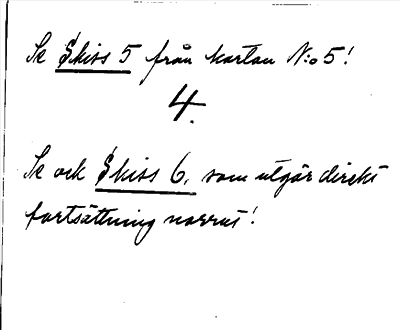 Se Skiss 5 från kartan N:o 5!
4.
Se och Skiss 6, som utgör direkt
fortsättning norrut!